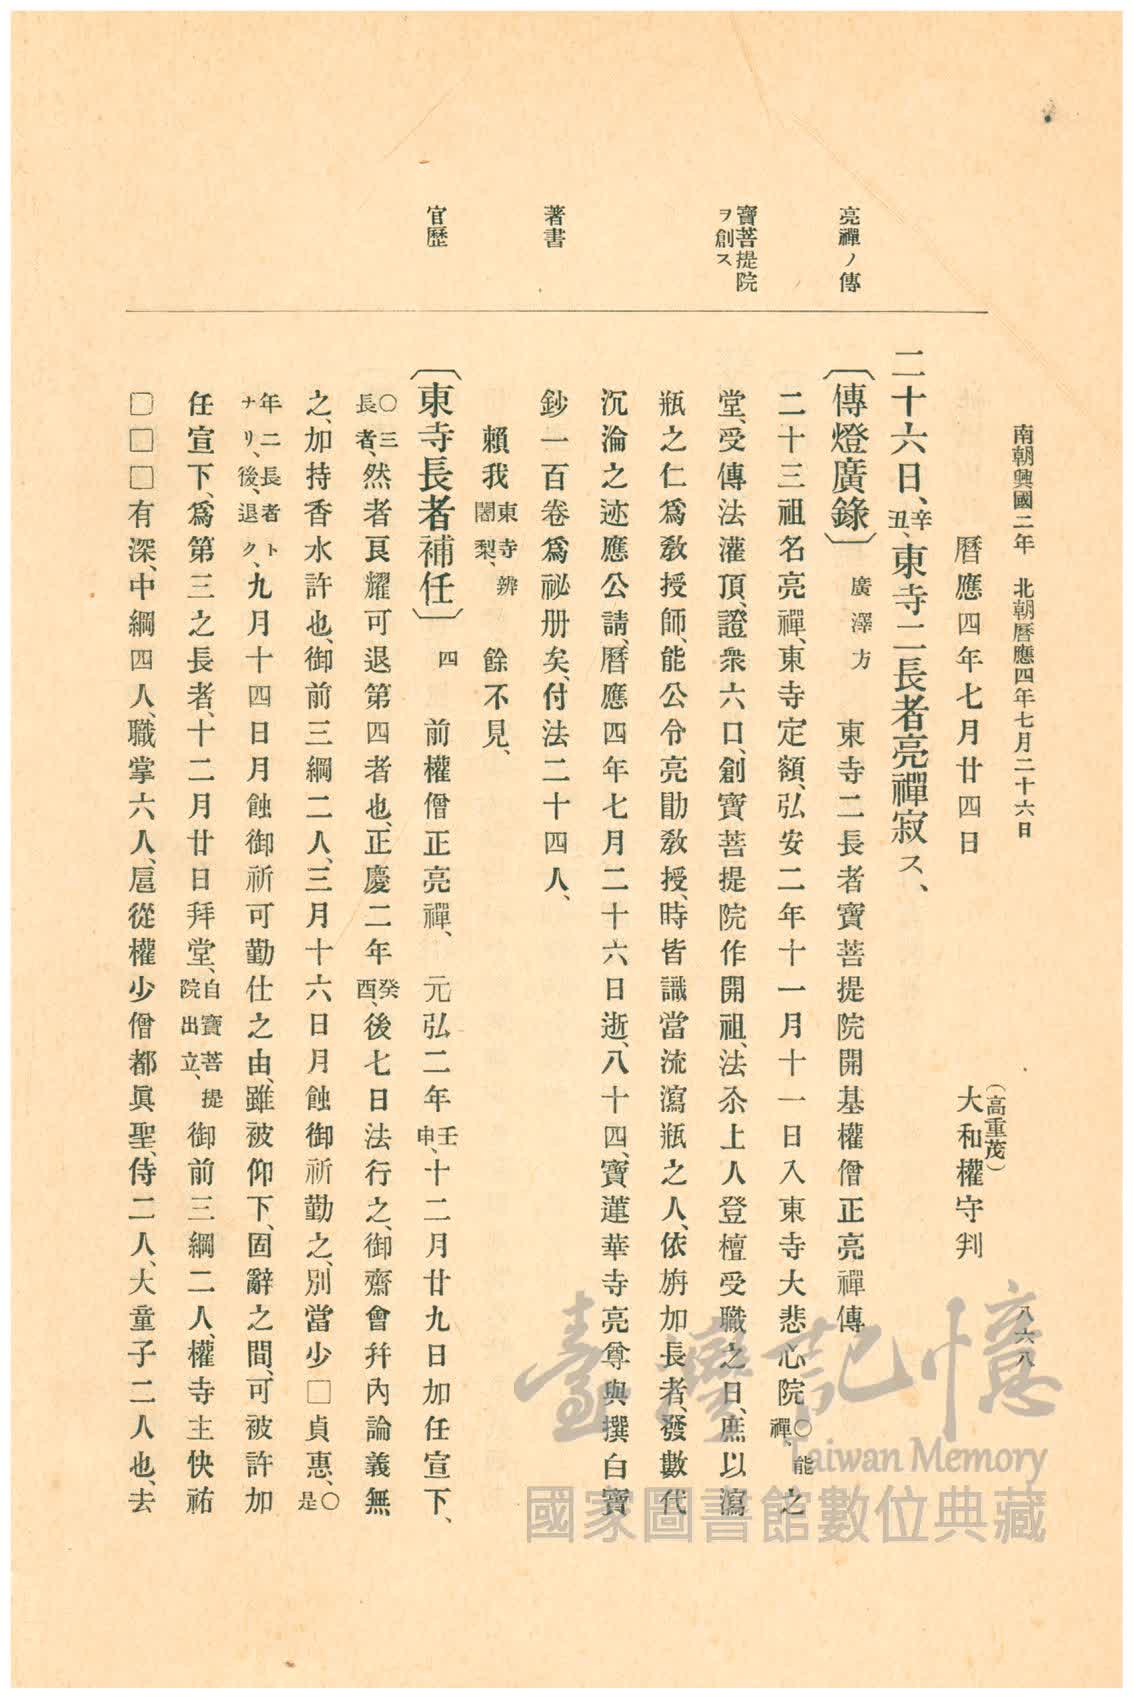 南朝興國二年　北朝曆應四年七月二十六日
八六八
曆應四年七月廿四日
(高重茂)
大和權守判
二十六日、辛丑、東寺二長者亮禪寂ス、
亮禪ノ傳
〔傳燈廣錄〕廣澤方　東寺二長者寶菩提院開基權僧正亮禪傳
二十三祖名亮禪、東寺定額、弘安二年十一月十一日入東寺大悲心院○能禪、之
寶菩提院ヲ創ス
堂、受傳法灌頂、證衆六口、創寶菩提院作開祖、法尒上人登檀受職之日、庶以瀉
瓶之仁爲敎授師、能公令亮勖敎授、時皆識當流瀉瓶之人、依旃加長者、發數代
沉淪之迹應公請、曆應四年七月二十六日逝、八十四、寶蓮華寺亮尊與撰白寶
著書
鈔一百卷爲祕册矣、付法二十四人、
賴我東寺辨闍梨、　餘不見、
官歷
〔東寺長者補任〕四　前權僧正亮禪、　元弘二年壬申、十二月廿九日加任宣下、
○三長者、然者良耀可退第四者也、正慶二年癸酉、後七日法行之、御齋會幷內論義無
之、加持香水許也、御前三綱二人、三月十六日月蝕御祈勤之、別當少□貞惠、○是
年二長者トナリ、後、退ク、九月十四日月蝕御祈可勤仕之由、雖被仰下、固辭之間、可被許加
任宣下、爲第三之長者、十二月廿日拜堂、自寶菩提院出立、御前三綱二人、權寺主快祐
□□□有深、中綱四人、職掌六人、扈從權少僧都眞聖、侍二人、大童子二人也、去
臺灣記憶
Taiwan Memory
國家圖書館數位典藏